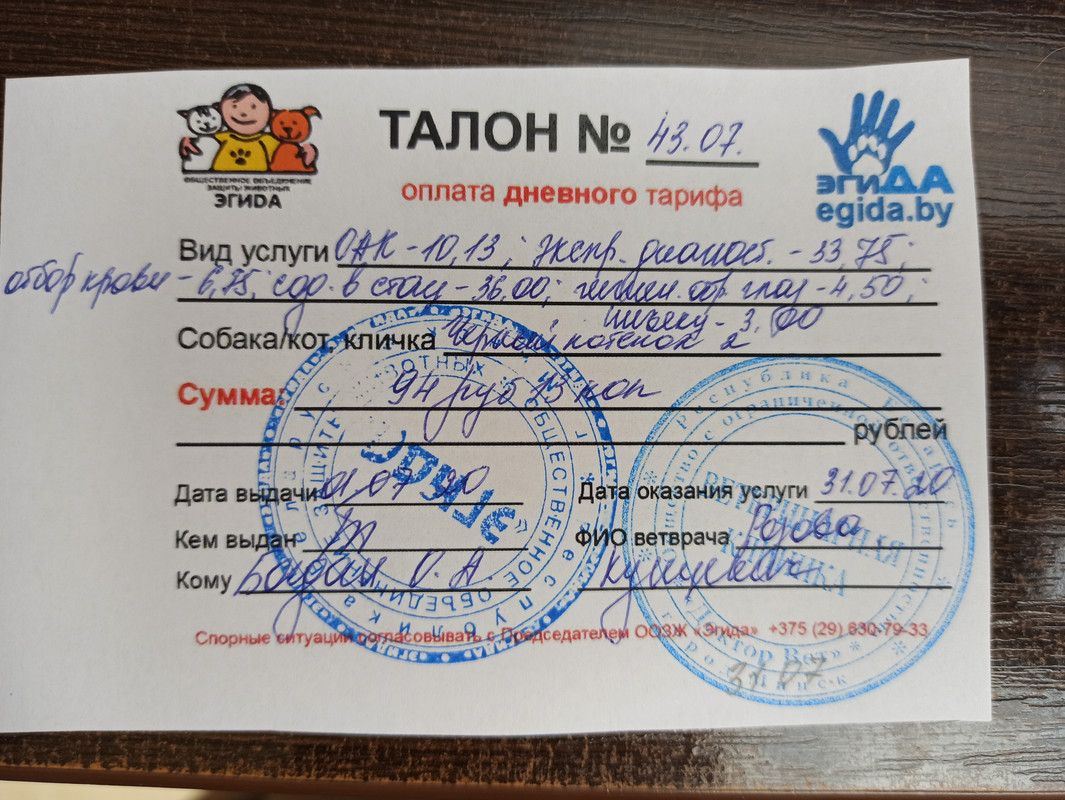 ОБЩЕСТВЕННОЕ ОБЪЕДИНЕНИЕ
ЗАЩИТЫ ЖИВОТНЫХ
ЭГИDА
ТАЛОН № 43.07.
оплата дневного тарифа
эгиДА
egida.by
Вид услуги ОАК - 10,13; экспр. диагност. - 33,75;
отбор крови - 6,75; сод. в стац - 36,00; гигиен. обр глаз - 4,50;
шприц - 3,00
Собака/кот, кличка Черный котенок 2
Сумма: 94 руб 13 коп
рублей
Дата выдачи 01.07 20
Дата оказания услуги 31.07.20
Кем выдан
ФИО ветврача
Кому О. А.
Спорные ситуации согласовывать с Председателем ООЗЖ «Эгида» +375 (29) 630-79-33
ОБЩЕСТВЕННОЕ ОБЪЕДИНЕНИЕ
«ЭГИДА»
Республика Беларусь
с ограниченной ответственностью
ВЕТЕРИНАРНАЯ
КЛИНИКА
«Доктор Вет»
город Минск
31.07